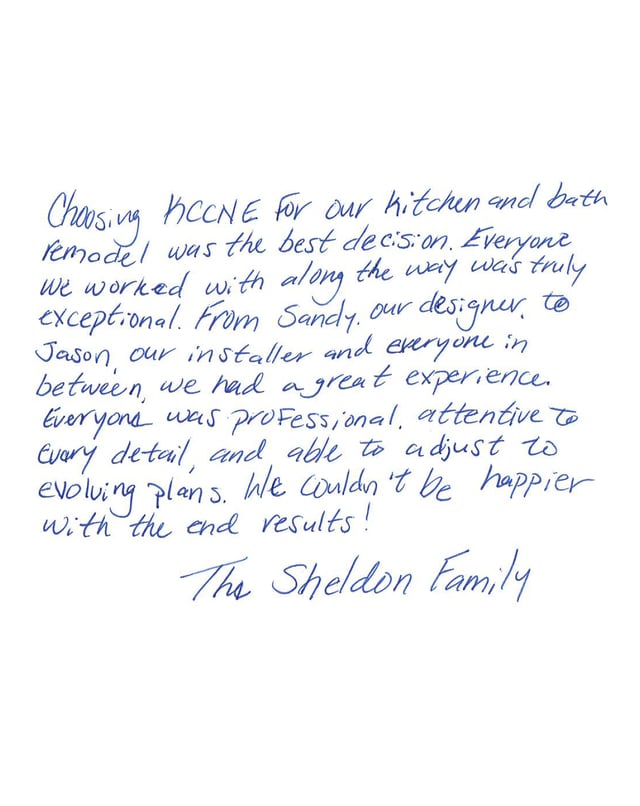 Choosing KCCNE for our kitchen and bath
remodel was the best decision. Everyone
we worked with along the way was truly
exceptional. From Sandy, our designer, to
Jason, our installer and everyone in
between, we had a great experience.
Everyone was professional, attentive to
every detail, and able to adjust to
evolving plans. We couldn't be happier
with the end results!
The Sheldon Family